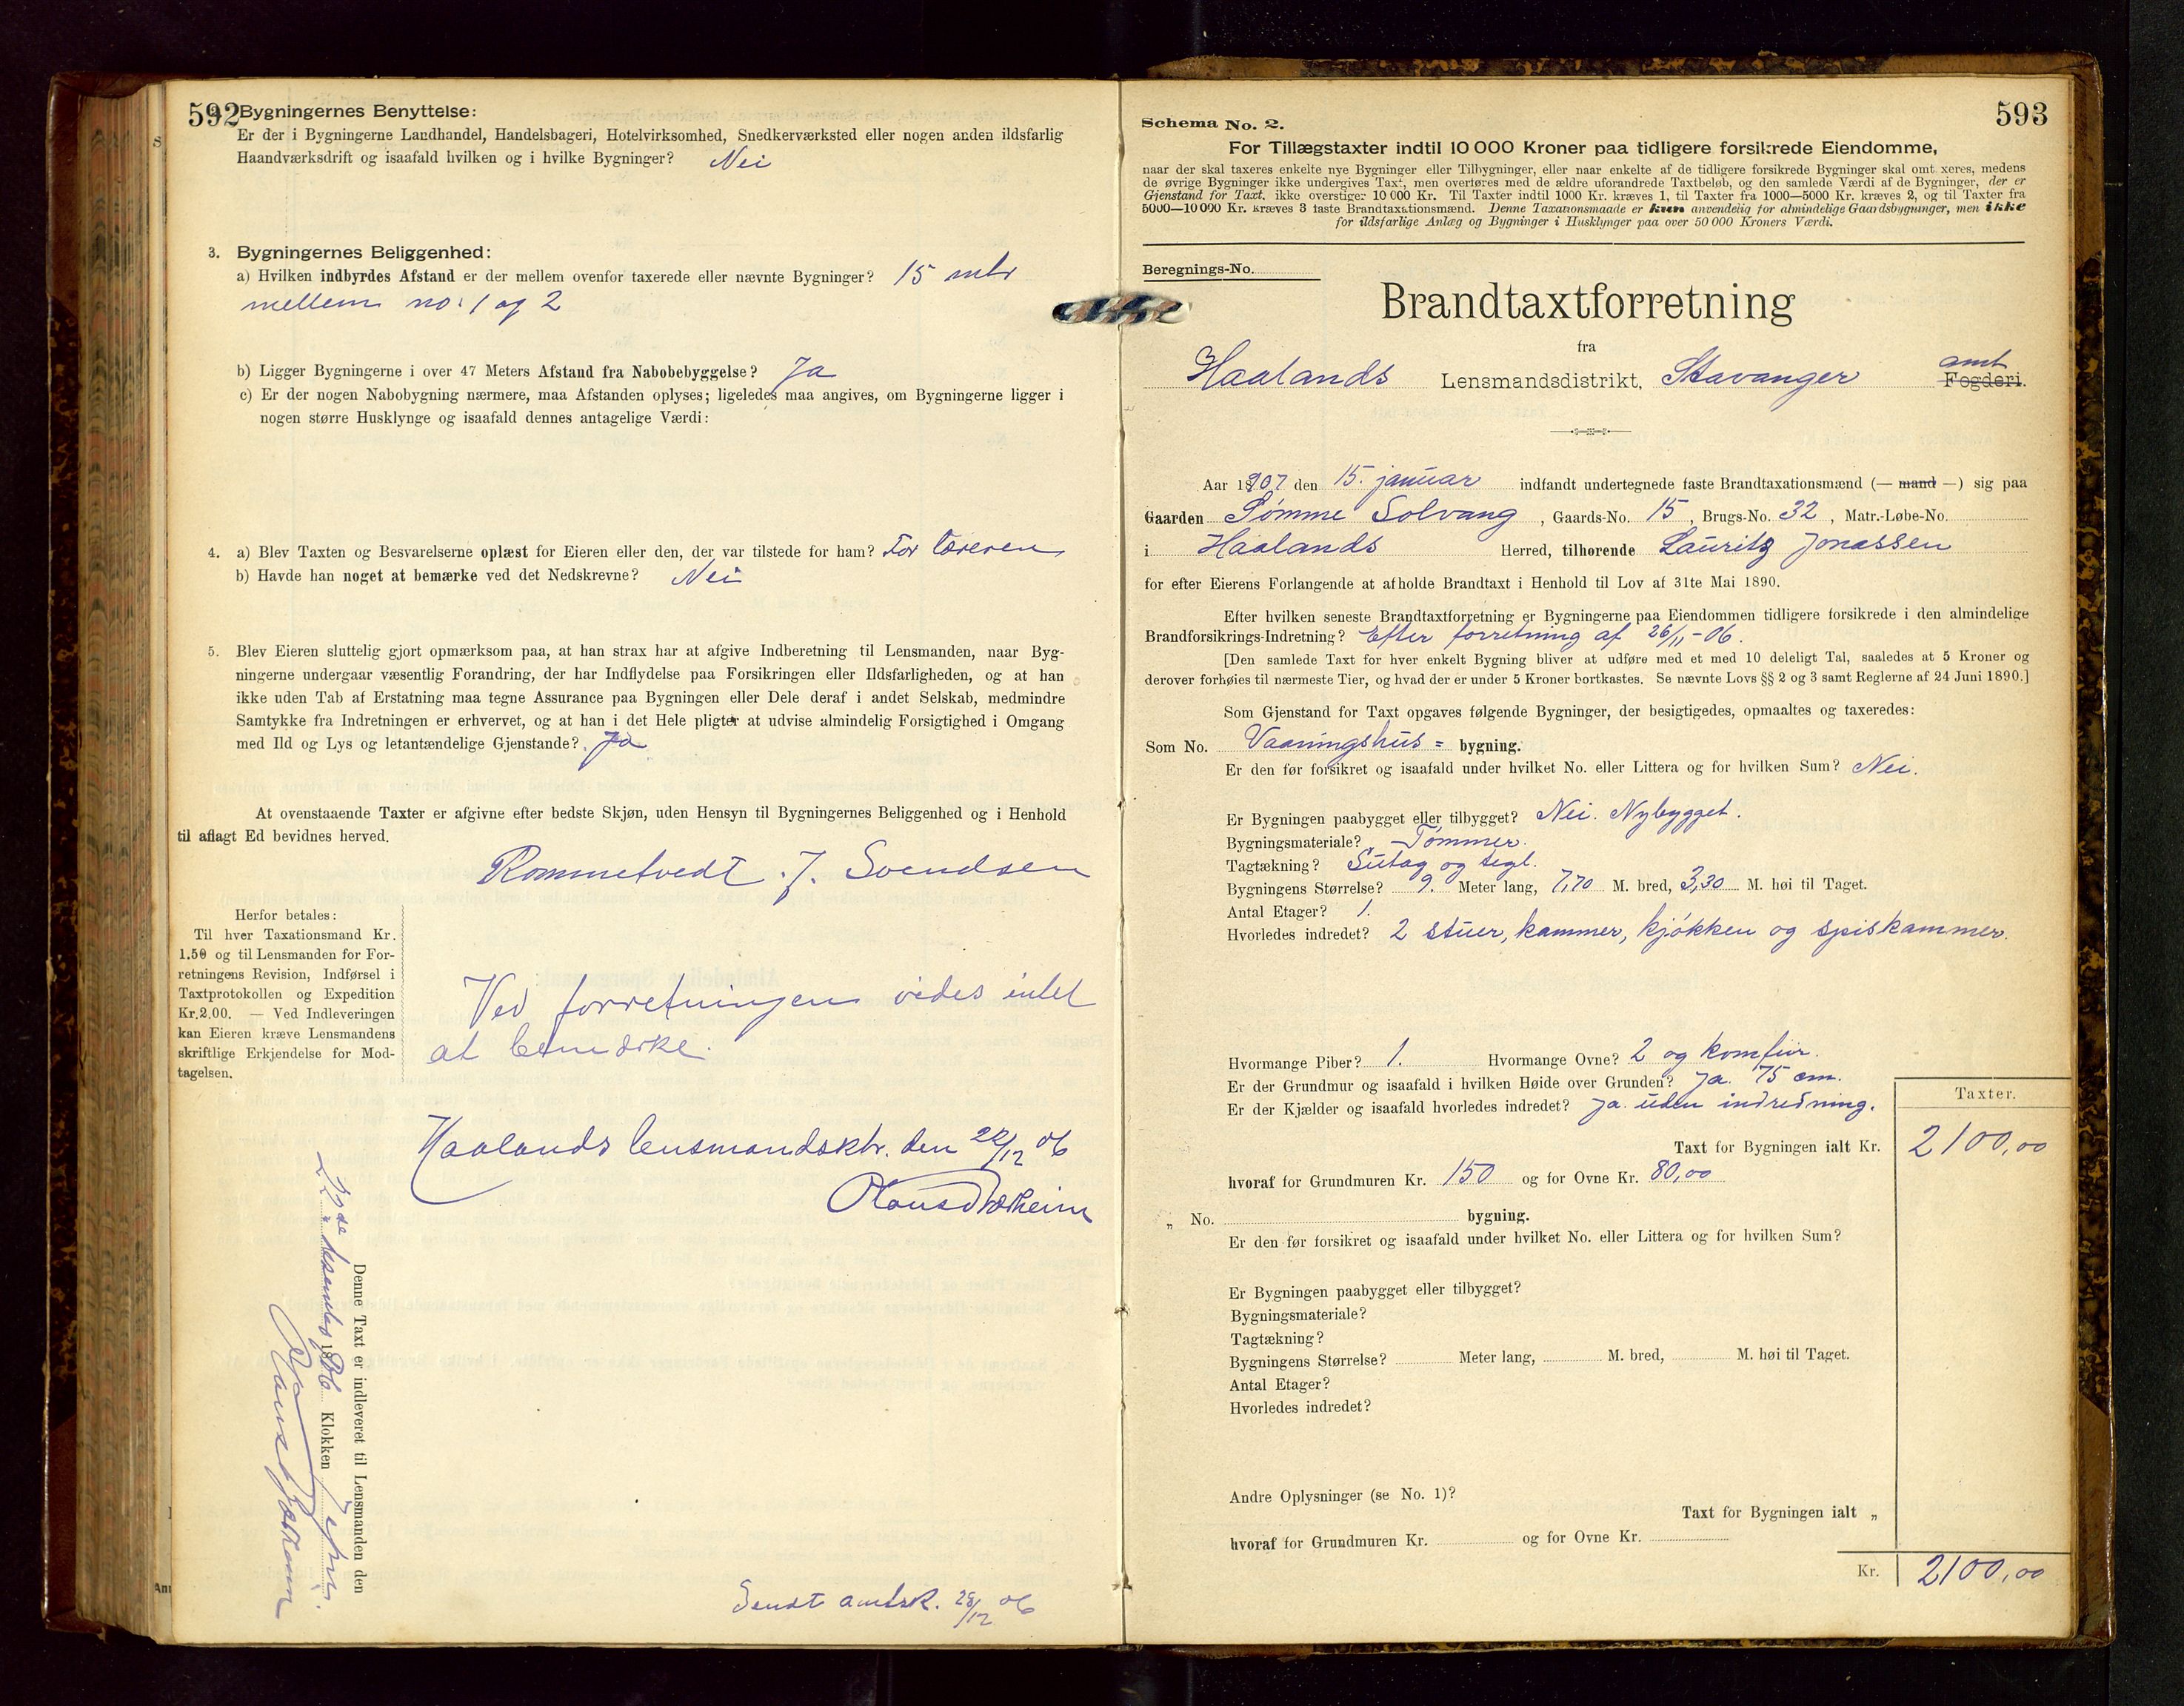 592 Bygningernes Benyttelse:
Er der i Bygningerne Landhandel, Handelsbageri, Hotelvirksomhed, Snedkerværksted eller nogen anden ildsfarlig
Haandværksdrift og isaafald hvilken og i hvilke Bygninger? Nei
3. Bygningernes Beliggenhed:
a) Hvilken indbyrdes Afstand er der mellem ovenfor taxerede eller nævnte Bygninger? 15 mtr
mellem no. 1 og 2
b) Ligger Bygningerne i over 47 Meters Afstand fra Nabobebyggelse? Ja
c) Er der nogen Nabobygning nærmere, maa Afstanden oplyses; ligeledes maa angives, om Bygningerne ligger i
nogen større Husklynge og isaafald dennes antagelige Værdi:
4. a) Blev Taxten og Besvarelserne oplæst for Eieren eller den, der var tilstede for ham? For
b) Havde han noget at bemærke ved det Nedskrevne? Nei
5. Blev Eieren sluttelig gjort opmærksom paa, at han strax har at afgive Indberetning til Lensmanden, naar Byg-
ningerne undergaar væsentlig Forandring, der har Indflydelse paa Forsikringen eller Ildsfarligheden, og at han
ikke uden Tab af Erstatning maa tegne Assurance paa Bygningen eller Dele deraf i andet Selskab, medmindre
Samtykke fra Indretningen er erhvervet, og at han i det Hele pligter at udvise almindelig Forsigtighed i Omgang
med Ild og Lys og letantændelige Gjenstande? Ja
At ovenstaaende Taxter er afgivne efter bedste Skjøn, uden Hensyn til Bygningernes Beliggenhed og i Henhold
til aflagt Ed bevidnes herved.
Rommetvedt. J. Svendsen
Herfor betales:
Til hver Taxationsmand Kr.
1.50 og til Lensmanden for For-
retningens Revision, Indførsel i
Taxtprotokollen og Expedition
Kr.2.00. — Ved Indleveringen
kan Eieren kræve Lensmandens
skriftlige Erkjendelse for Mod-
tagelsen.
Ved forretningen vides intet
at bemærke.
Haalands lensmandsktr. den 22/12 06
Denne Taxt er indleveret til Lensmanden den
22de desember 1906 Klokken 7 epm.
Sendt amtsk. 28/12 06
593
Schema No. 2.
For Tillægstaxter indtil 10 000 Kroner paa tidligere forsikrede Eiendomme,
naar der skal taxeres enkelte nye Bygninger eller Tilbygninger, eller naar enkelte af de tidligere forsikrede Bygninger skal omt xeres, medens
de øvrige Bygninger ikke undergives Taxt, men overføres med de ældre uforandrede Taxtbeløb, og den samlede Værdi af de Bygninger, der er
Gjenstand for Taxt, ikke overstiger 10 000 Kr. Til Taxter indtil 1000 Kr. kræves 1, til Taxter fra 1000—5000 Kr. kræves 2, og til Taxter fra
5000—10 000 Kr. kræves 3 faste Brandtaxationsmænd. Denne Taxationsmaade er kun anvendelig for almindelige Gaardsbygninger, men ikke
for ildsfarlige Anlæg og Bygninger i Husklynger paa over 50 000 Kroners Værdi.
Beregnings-No.
Brandtaxtforretning
fra
Haalands Lensmandsdistrikt, Stavanger amt Fogderi.
Aar 1907 den 15. januar indfandt undertegnede faste Brandtaxationsmænd (— mand —) sig paa
Gaarden Sømme Solvang, Gaards-No. 15, Brugs-No. 32, Matr.-Løbe-No.
i Haalands Herred, tilhørende Lauritz Jonassen
for efter Eierens Forlangende at afholde Brandtaxt i Henhold til Lov af 31te Mai 1890.
Efter hvilken seneste Brandtaxtforretning er Bygningerne paa Eiendommen tidligere forsikrede i den almindelige
Brandforsikrings-Indretning? Efter forretning af 26/11-06.
[Den samlede Taxt for hver enkelt Bygning bliver at udføre med et med 10 deleligt Tal, saaledes at 5 Kroner og
derover forhøies til nærmeste Tier, og hvad der er under 5 Kroner bortkastes. Se nævnte Lovs §§ 2 og 3 samt Reglerne af 24 Juni 1890.]
Som Gjenstand for Taxt opgaves følgende Bygninger, der besigtigedes, opmaaltes og taxeredes:
Som No. Vaaningshus= bygning.
Er den før forsikret og isaafald under hvilket No. eller Littera og for hvilken Sum? Nei.
Er Bygningen paabygget eller tilbygget? Nei. Nybygget.
Bygningsmateriale? Tømmer.
Tagtækning? Sutag og tegl.
Bygningens Størrelse? 9. Meter lang, 7,70 M. bred, 3,30 M. høi til Taget.
Antal Etager? 1.
Hvorledes indredet? 2 stuer, kammer, kjøkken og spiskammer.
Hvormange Piber? 1. Hvormange Ovne? 2 og komfur.
Er der Grundmur og isaafald i hvilken Høide over Grunden? Ja. 75 cm.
Er der Kjælder og isaafald hvorledes indredet? Ja. uden indredning.
Taxter.
Taxt for Bygningen ialt Kr. 2100,00
hvoraf for Grundmuren Kr. 150 og for Ovne Kr. 80,00
„ No. bygning.
Er den før forsikret og isaafald under hvilket No. eller Littera og for hvilken Sum?
Er Bygningen paabygget eller tilbygget?
Bygningsmateriale?
Tagtækning?
Bygningens Størrelse? Meter lang, M. bred, M. høi til Taget.
Antal Etager?
Hvorledes indredet?
Andre Oplysninger (se No. 1)?
Taxt for Bygningen ialt „
hvoraf for Grundmuren Kr. og for Ovne Kr.
Kr. 2100,00